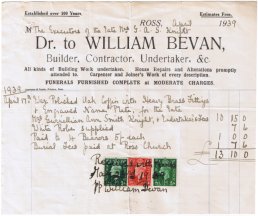 Established over 100 Years. Estimates Free.
ROSS, April 1939
The Executors of the late Mrs G. A. S. Knight
Dr. to WILLIAM BEVAN,
Builder, Contractor, Undertaker, &c.
All kinds of Building Work undertaken. House Repairs and Alterations promptly
attended to. Carpenter and Joiner's Work of every description.
FUNERALS FURNISHED COMPLETE at MODERATE CHARGES.
1939
April 17th Wax Polished Oak Coffin with Heavy Brass Fittings
Engraved Name Plate, for the late
Mrs Ann Smith Knight, & Undertakers Fees 10 15 0
White Robe supplied 7 6
Paid 4 Bearers 5/- each 1 0 0
Burial Fees paid at Ross Church 7 6
13 10 0
Received with
William Bevan